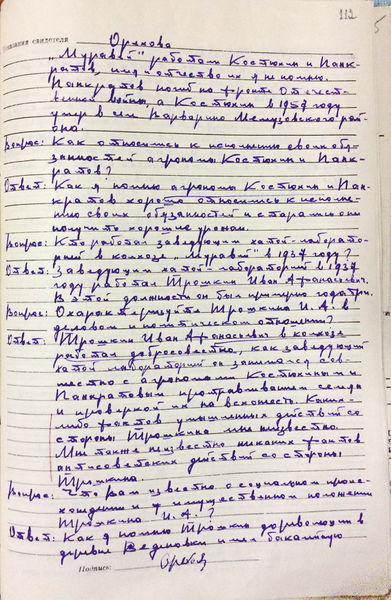 112
Показания свидетеля Орехова
„Муравей" работали Костюхин и Панк-
ратов, имя и отчество их я не помню.
Панкратов погиб на фронте Отечест-
венной войны, а Костюхин в 1957 году
умер в селе Варварино Мелузовского рай-
она.
Вопрос: Как относились к исполнению своих обя-
занностей агрономы Костюхин и Панк-
ратов?
Ответ: Как я помню агрономы Костюхин и Пан-
кратов хорошо относились к исполне-
нию своих обязанностей и старались они
получить хорошие урожаи.
Вопрос: Кто работал заведующим хатой-лаборато-
рией в колхозе „Муравей" в 1937 году?
Ответ: Заведующим хатой-лабораторией в 1937
году работал Трошкин Иван Афанасьевич.
В этой должности он был примерно года три.
Вопрос: Охарактеризуйте Трошкина И.А. в
деловом и политическом отношении?
Ответ: Трошкин Иван Афанасьевич в колхозе
работал добросовестно, как заведующий
хатой лабораторией он занимался сов-
местно с агрономами Костюхиным и
Панкратовым протравливанием семян
и проверкой их на всхожесть. Каких-
либо фактов умышленных действий со
стороны Трошкина мне неизвестно.
Мне также неизвестно никаких фактов
антисоветских действий со стороны
Трошкина.
Вопрос: Что Вам известно о социальном проис-
хождении и имущественном положении
Трошкина И.А.?
Ответ: Как я помню Трошкин до революции в
деревне имел бакалейную
Подпись: Орехов